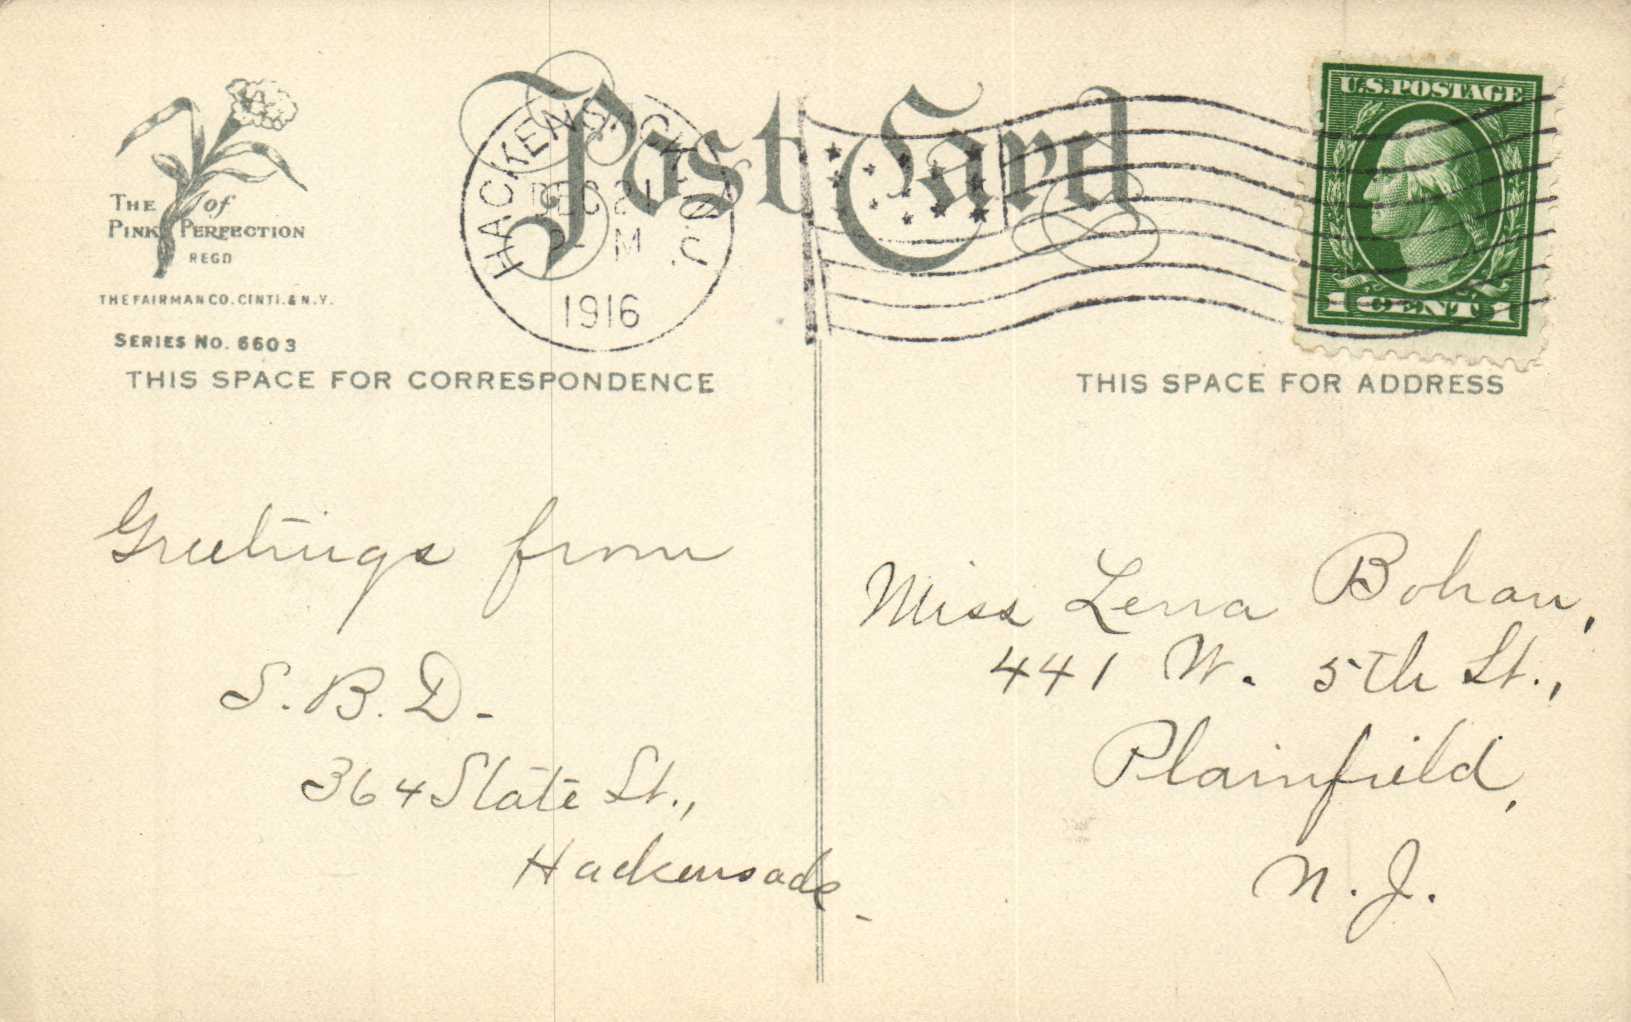 Post Card
THE of
PINK PERFECTION
REGD
THE FAIRMAN CO. CINTI. & N.Y.
SERIES No. 6603
HACKENSACK, N.J.
DEC 21
M
1916
U.S. POSTAGE
1 CENT 1
THIS SPACE FOR CORRESPONDENCE
THIS SPACE FOR ADDRESS
Greetings from
S. B. D.
364 State St.,
Hackensack
Miss Lena Bohan,
441 W. 5th St.,
Plainfield,
N. J.